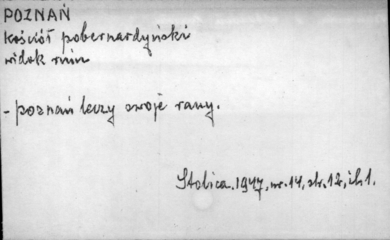 POZNAŃ
kościół pobernardyński
widok ruin
- poznań leczy swoje rany.
Stolica. 1947, nr. 14, str. 12, il. 1.